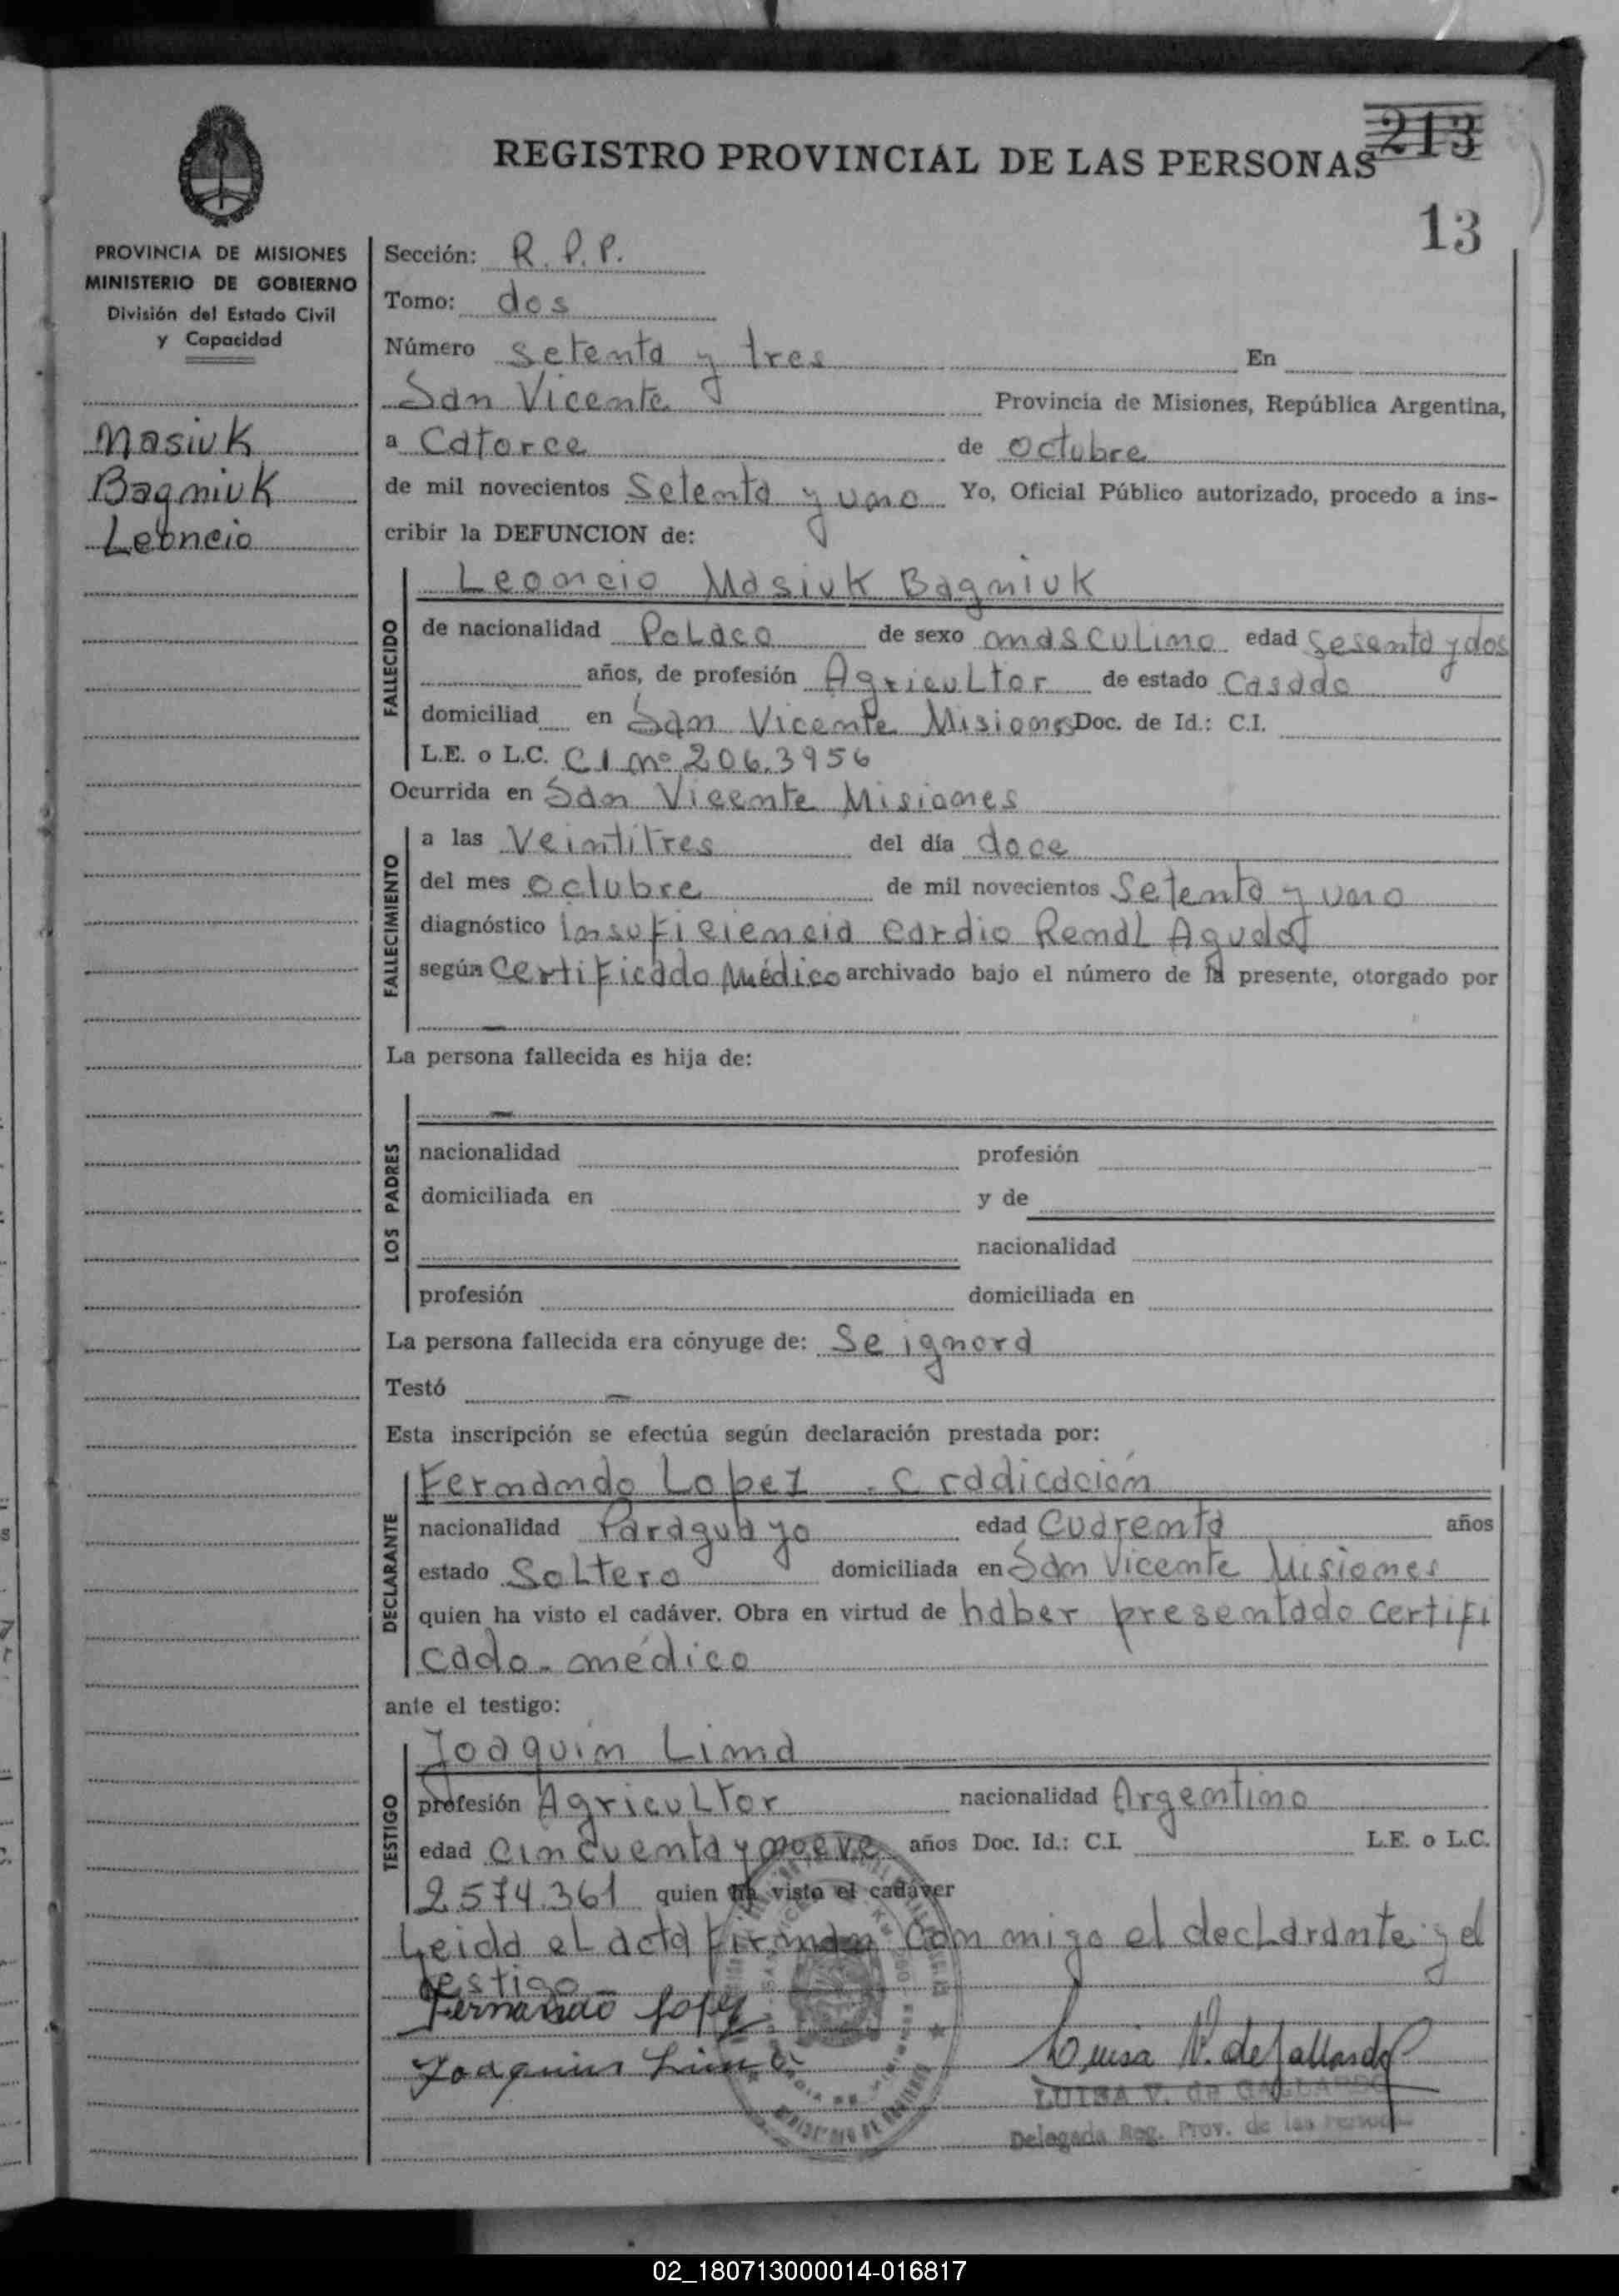 213
REGISTRO PROVINCIAL DE LAS PERSONAS
13
PROVINCIA DE MISIONES
MINISTERIO DE GOBIERNO
División del Estado Civil
y Capacidad
Masiuk
Bagniuk
Leoncio
Sección: R. P. P.
Tomo: dos
Número setenta y tres En
San Vicente Provincia de Misiones, República Argentina,
a Catorce de octubre
de mil novecientos Setenta y uno Yo, Oficial Público autorizado, procedo a ins-
cribir la DEFUNCION de:
FALLECIDO
Leoncio Masiuk Bagniuk
de nacionalidad Polaco de sexo masculino edad Sesenta y dos
años, de profesión Agricultor de estado Casado
domiciliad en San Vicente Misiones Doc. de Id.: C.I.
L.E. o L.C. CI nº 206.3956
Ocurrida en San Vicente Misiones
FALLECIMIENTO
a las Veintitres del día doce
del mes octubre de mil novecientos Setenta y uno
diagnóstico Insuficiencia Cardio Renal Aguda
según Certificado Médico archivado bajo el número de la presente, otorgado por
La persona fallecida es hija de:
LOS PADRES
nacionalidad profesión
domiciliada en y de
nacionalidad
profesión domiciliada en
La persona fallecida era cónyuge de: Se ignora
Testó
Esta inscripción se efectúa según declaración prestada por:
DECLARANTE
Fernando Lopez . C radicación
nacionalidad Paraguayo edad Cuarenta años
estado Soltero domiciliada en San Vicente Misiones
quien ha visto el cadáver. Obra en virtud de haber presentado certifi
cado - médico
ante el testigo:
TESTIGO
Joaquín Lima
profesión Agricultor nacionalidad Argentino
edad Cincuenta y nueve años Doc. Id.: C.I. L.E. o L.C.
2.574.361 quien ha visto el cadáver
Leida el acta firman conmigo el declarante y el
testigo
Fernando Lopez
Joaquin Lima
Luisa V. de Gallardo
LUISA V. de GALLARDO
Delegada Reg. Prov. de las Personas
02_180713000014-016817